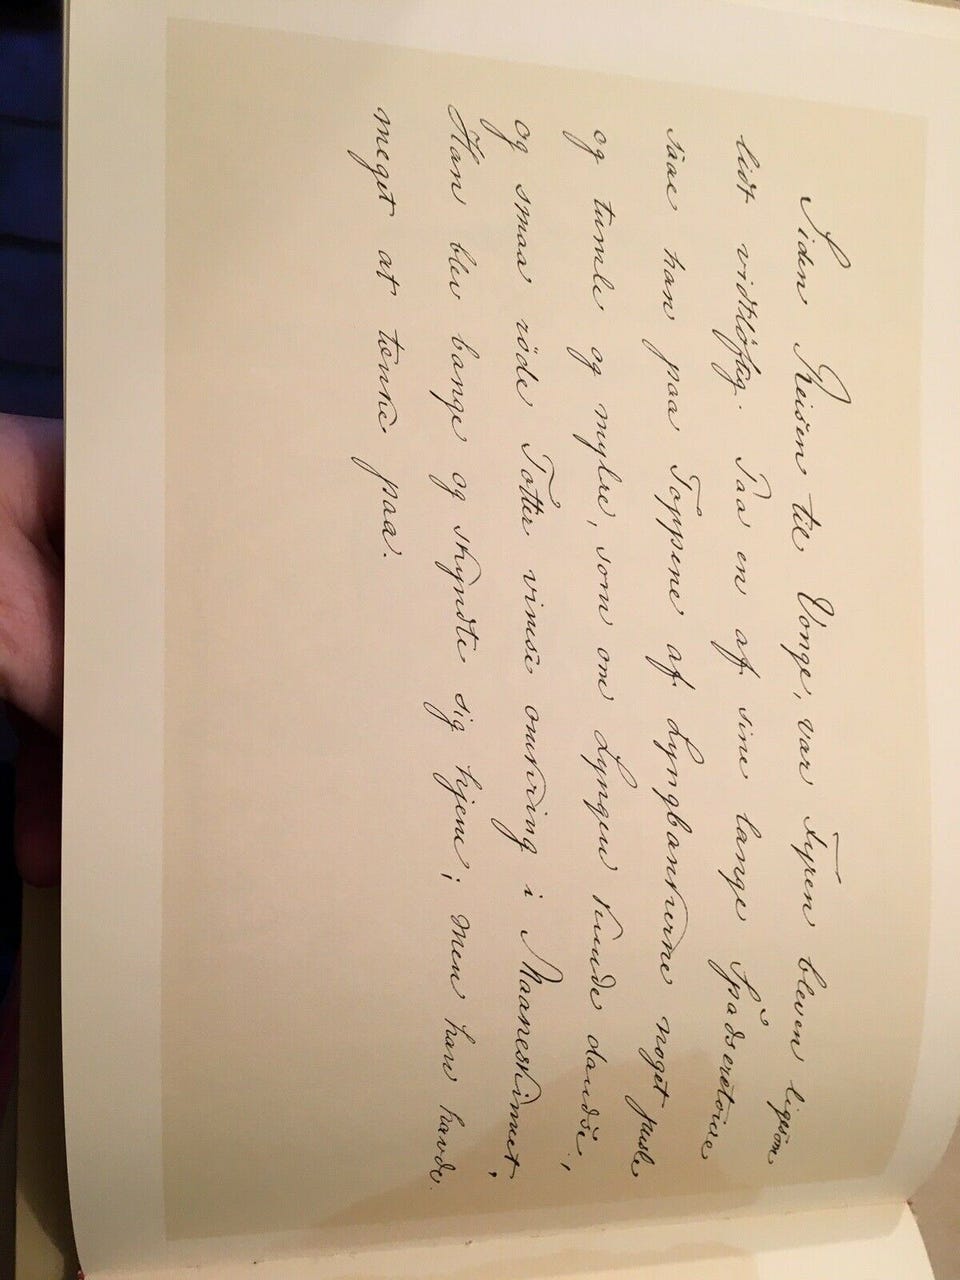 Siden Reisen til Vonge, var Fyren bleven ligesom
lidt vidtløftig. Paa en af sine lange Spadseretoure
saae han paa Toppene af Lyngbankerne noget pusle
og tumle og myldre, som om Lyngen kunde dandse,
og smaa røde Totter vimse omkring i Maaneskinnet.
Han blev bange og skyndte sig hjem; men han havde
meget at tænke paa.